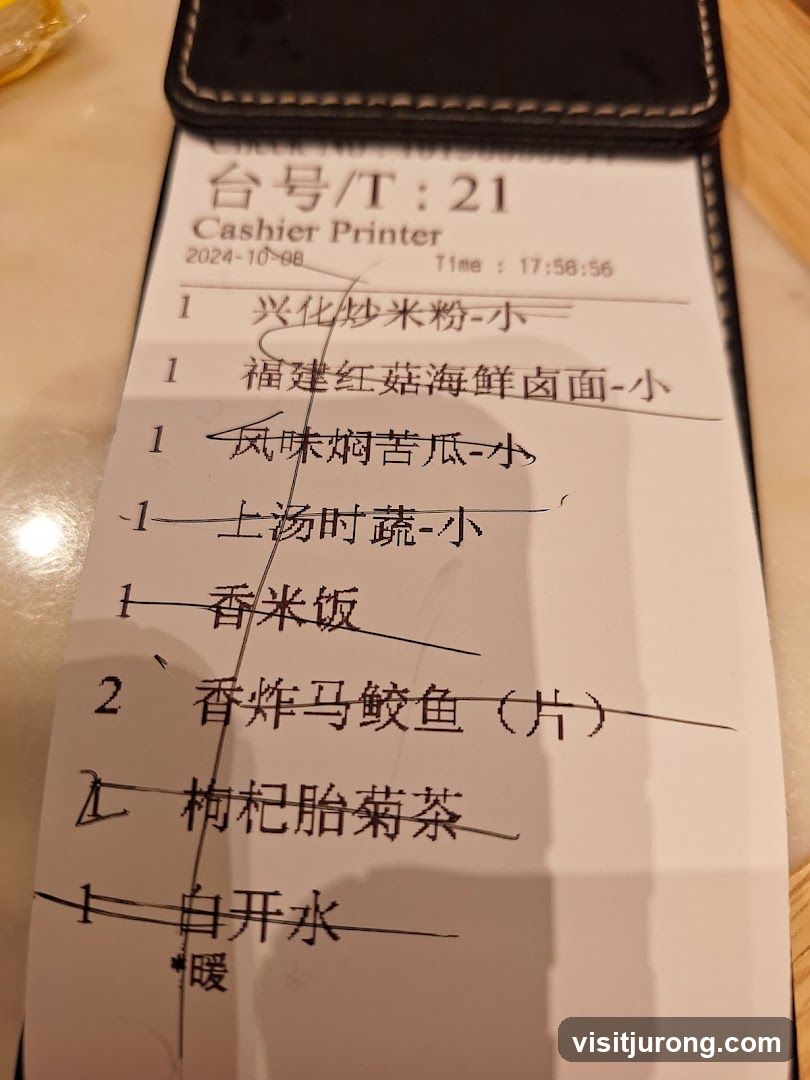 台号/T : 21
Cashier Printer
2024-10-08 Time : 17:58:56
1 兴化炒米粉-小
1 福建红菇海鲜卤面-小
1 风味焖苦瓜-小
1 上汤时蔬-小
1 香米饭
2 香炸马鲛鱼（片）
枸杞胎菊茶
1 白开水
*暖
visitjurong.com